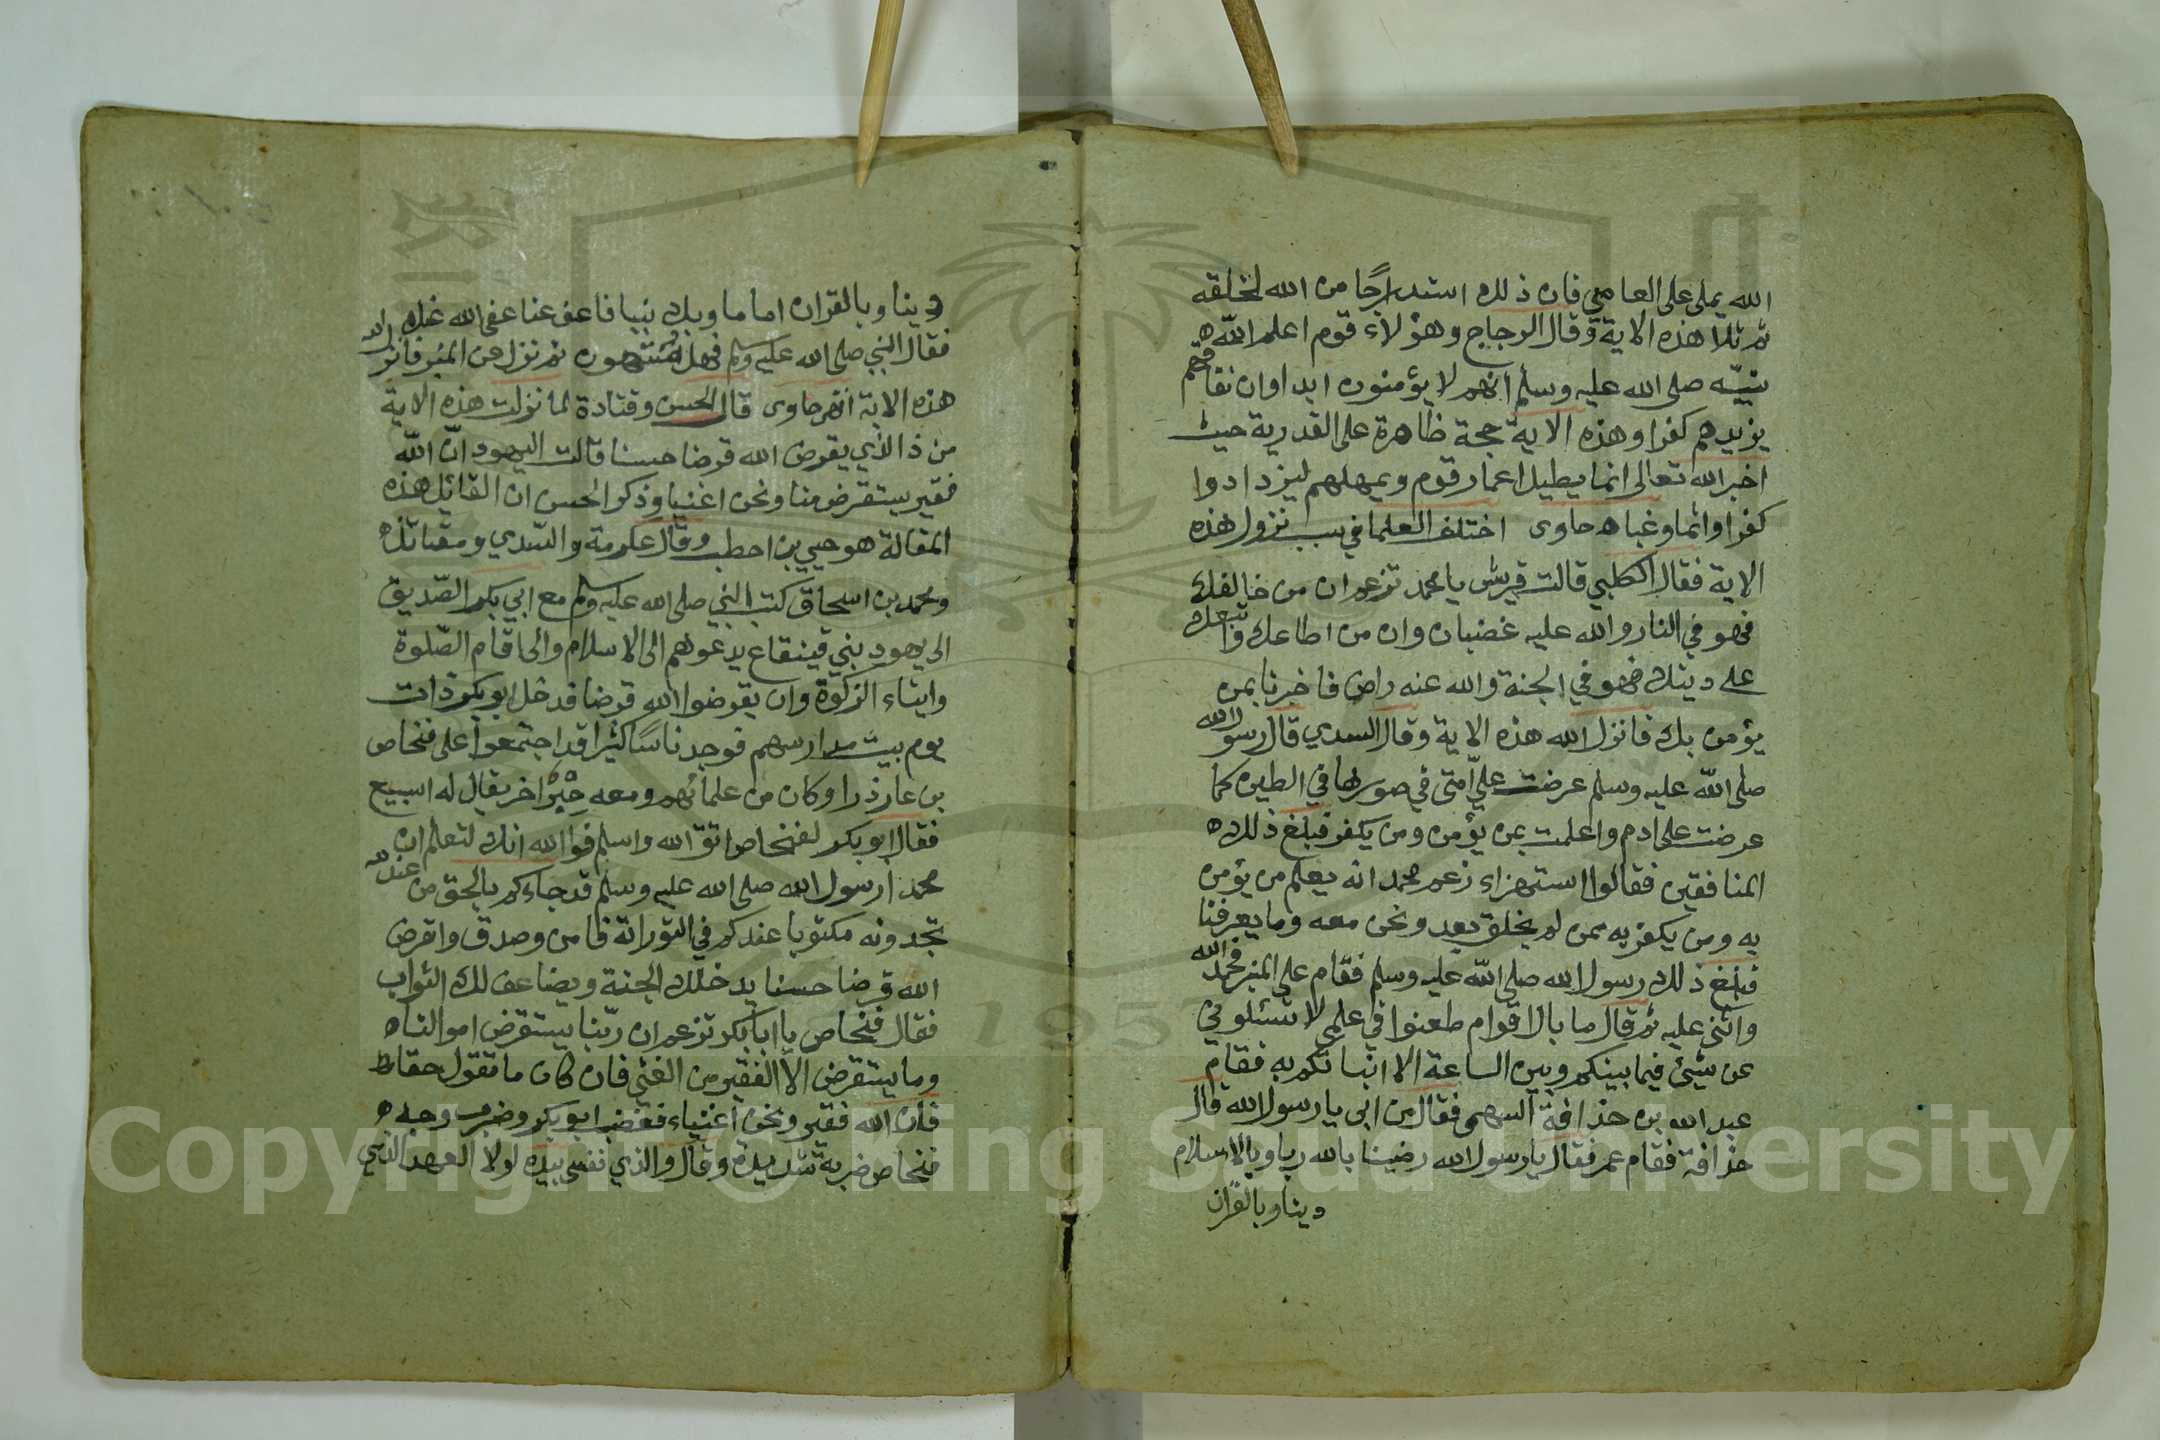 الله يملى على العاصي فان ذلك استدراجا من الله لخلقه
ثم تلا هذه الاية وقال الزجاج وهؤلاء قوم اعلم الله
نبيّه صلى الله عليه وسلم انهم لا يؤمنون ابدا وان نفاقهم
يزيدهم كفرا وهذه الاية حجة ظاهرة على القدرية حيث
اخبر الله تعالى انما يطيل اعمار قوم ويمهلهم ليزدادوا
كفرا واثما وغيا ه حاوى اختلف العلما في سبب نزول هذه
الاية فقال الكلبي قالت قريش يا محمد تزعم ان من خالفك
فهو في النار والله عليه غضبان وان من اطاعك وتبعك
على دينك فهو في الجنة والله عنه راض فاخبرنا بمن
يؤمن بك فانزل الله هذه الاية وقال السدي قال رسول الله
صلى الله عليه وسلم عرضت عليّ امتى في صورها في الطين كما
عرضت على ادم واعلمت بمن يؤمن ومن يكفر فبلغ ذلك ه
المنافقين فقالوا استهزاء زعم محمد انه يعلم من يؤمن
به ومن يكفر به ممن لم يخلق بعد ونحن معه وما يعرفنا
فبلغ ذلك رسول الله صلى الله عليه وسلم فقام على المنبر فحمد الله
واثنى عليه ثم قال ما بال اقوام طعنوا في علمي لا تسئلوني
عن شيئ فيما بينكم وبين الساعة الا انباتكم به فقام
عبد الله بن حذافة السهمى فقال من ابى يا رسول الله قال
حذافة فقام عمر فقال يا رسول الله رضينا بالله ربا وبالاسلام
دينا وبالقران
دينا وبالقران اماما وبك نبيا فاعف عنا عفى الله عنك
فقال النبي صلى الله عليه وسلم فهل انتم منتهون ثم نزل عن المنبر فانزل الله
هذه الاية انتهى حاوى قال الحسن وقتادة لما نزلت هذه الاية
من ذا الذي يقرض الله قرضا حسنا قالت اليهود انّ الله
فقير يستقرض منا ونحن اغنيا وذكر الحسن ان القائل هذه
المقالة هو حيي بن احطب وقال عكرمة والسّدي ومقاتل ه
ومحمد بن اسحاق كتب النبي صلى الله عليه وسلم مع ابي بكر الصّديق
الى يهود بني قينقاع يدعوهم الى الاسلام والى اقام الصّلوة
وايتاء الزكوة وان يقرضوا الله قرضا فدخل ابو بكر ذات
يوم بيت مدارسهم فوجد ناسًا كثيرا قد اجتمعوا على فنحاص
بن عازذرا وكان من علمائهم ومعه حِبْرٌ اخر يقال له اسبيع
فقال ابو بكر لفنحاص اتق الله واسلم فوالله انك لتعلم ان
محمدا رسول الله صلى الله عليه وسلم قد جاءكم بالحق من عند الله
تجدونه مكتوبا عندكم في التوراة فامن وصدق واقرض
الله قرضا حسنا يدخلك الجنة ويضاعف لك الثواب
فقال فنحاص يا ابا بكر تزعم ان ربّنا يستقرض اموالنا ه
وما يستقرض الّا الفقير من الغني فان كان ما تقول حقا
فان الله فقير ونحن اغنياء فغضب ابو بكر وضرب وجه ه
فنحاص ضربة شديدة وقال والذي نفسى بيده لولا العهد الذي
Copyright © King Saud University
1957